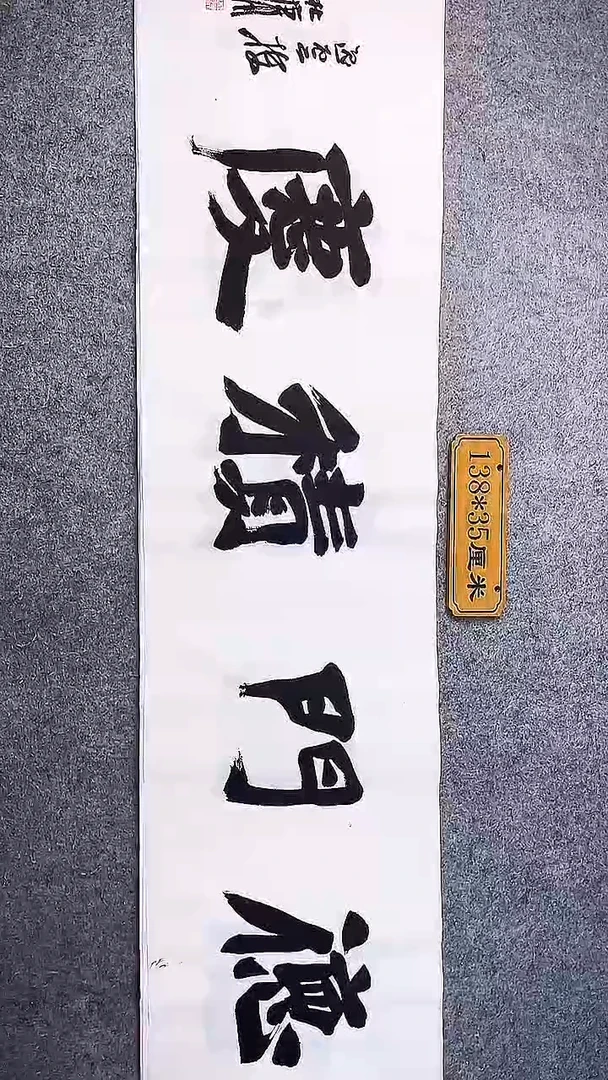 德門積慶
138*35厘米